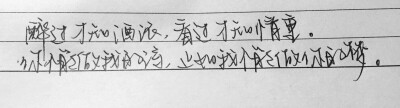 醉过才知酒浓，爱过才知情重。
你不能做我的诗，正如我不能做你的梦。